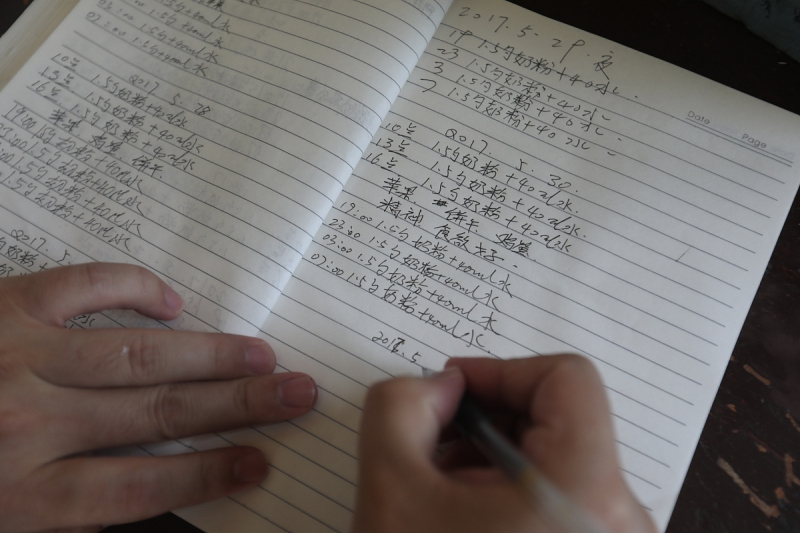 03:00 1.5勺+40ml水
07:00 1.5勺+40ml水
2017.5.28
10点 1.5勺奶粉+40ml水
13点 1.5勺奶粉+40ml水
16点 1.5勺奶粉+40ml水
苹果 饼干
19:00 1.5勺奶粉+40ml水
23:00 1.5勺奶粉+40ml水
1.5勺奶粉+40ml水
1.5勺奶粉+40ml水
2017.5
2017.5.29.夜
Date Page
19 1.5勺奶粉+40水
23 1.5勺奶粉+40水
3 1.5勺奶粉+40水
7 1.5勺奶粉+40水
2017.5.30.
10点 1.5勺奶粉+40ml水
13点 1.5勺奶粉+40ml水
16点 1.5勺奶粉+40ml水
苹果 饼干
精神
19:00 1.5勺奶粉+40ml水
23:00 1.5勺奶粉+40ml水
03:00 1.5勺奶粉+40ml水
07:00 1.5勺奶粉+40ml水
2017.5